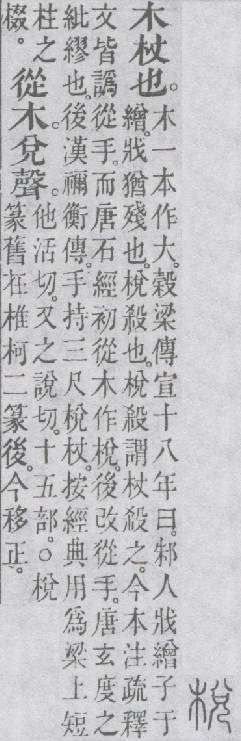 梲
木杖也。
木一本作大。穀梁傳宣十八年曰。邾人戕繒子于
繒。戕猶殘也。梲殺也。梲殺謂杖殺之。今本注疏釋
文皆譌從手。而唐石經初從木作梲。後改從手。唐玄度之
紕繆也。後漢禰衡傳。手持三尺梲杖。按經典用爲梁上短
柱之
棳。
從木。兌聲。
他活切。又之說切。十五部。○梲
篆舊在椎柯二篆後。今移正。